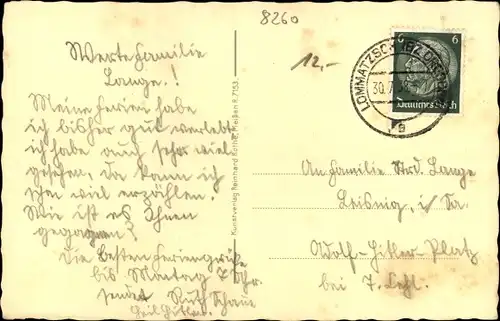 8260
12,-
Werte Familie
Lange.!
Meine Ferien habe
ich bisher gut verlebt
ich habe auch sehr viel
gesehen, da kann ich
schon viel erzählen.
Wie ist es Ihnen
gegangen?
Die besten Feriengrüße
bis Montag 7 Uhr.
sendet Ruth
Heil Hitler.
Kunstverlag Reinhard Rothe, Meißen 9, 7153
LOMMATZSCH
30.7.
a
6 6
Deutsches Reich
An Familie Lange
Leisnig, i Sa.
Adolf-Hitler-Platz
bei